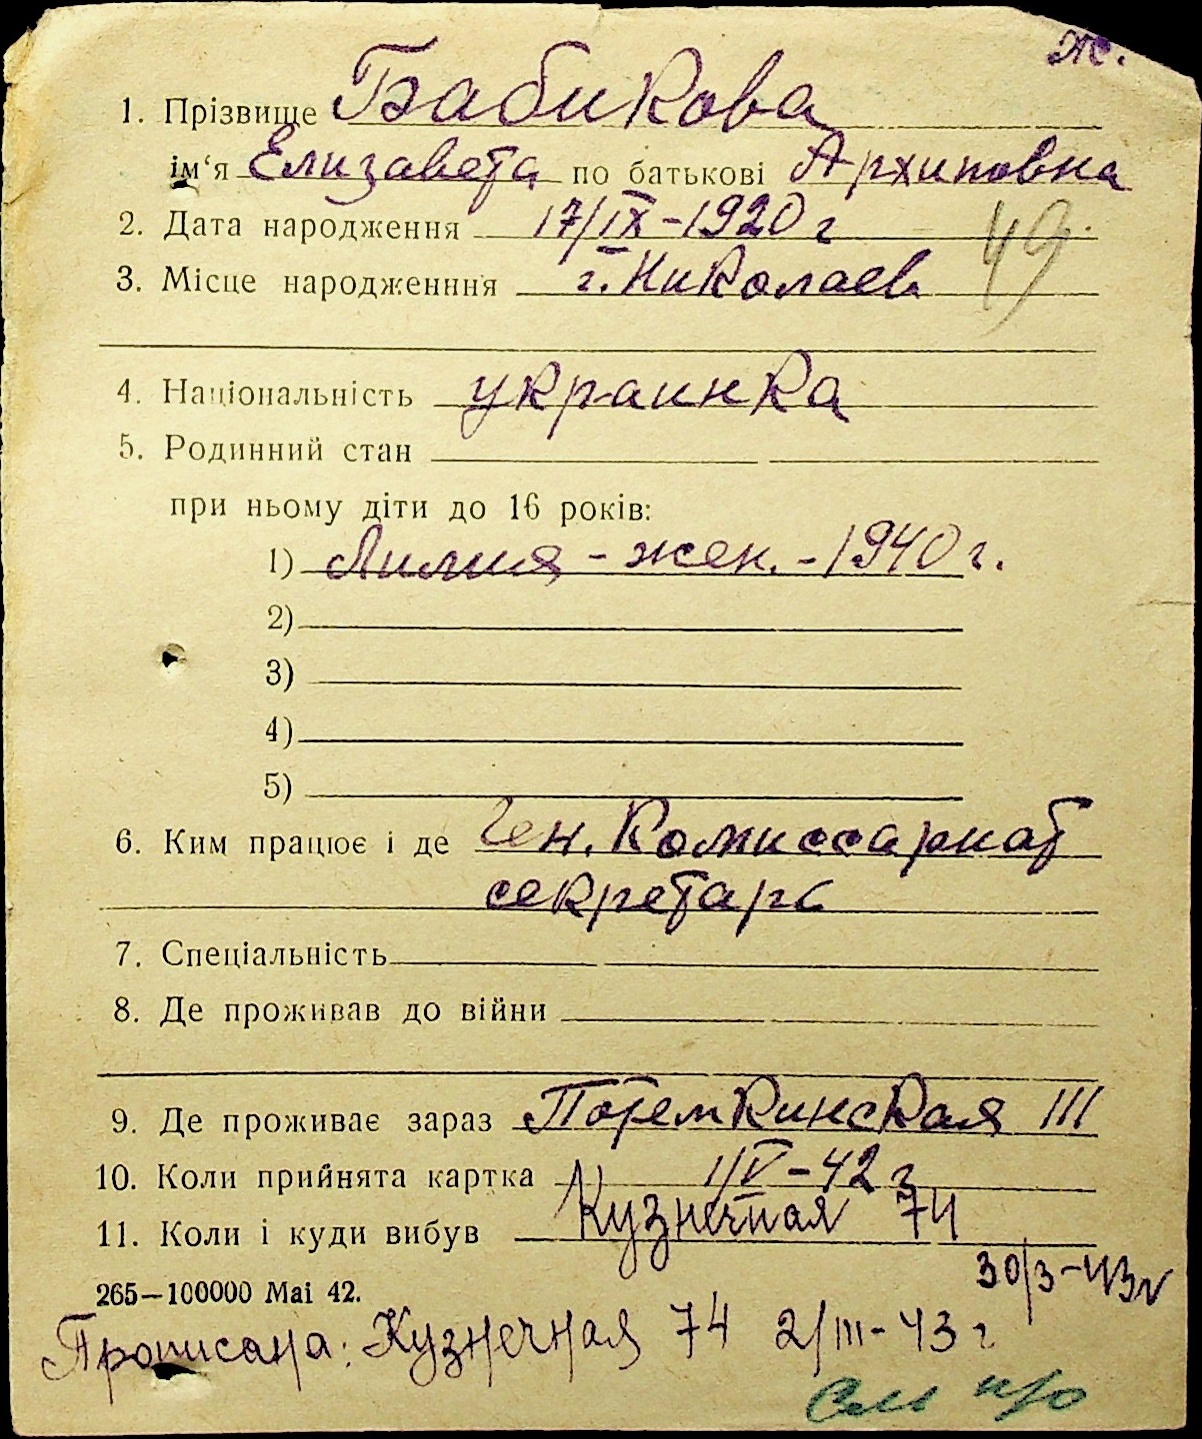 Ж.
1. Прізвище Бабикова
ім‘я Елизавета по батькові Архиповна
2. Дата народження 17/IX-1920 г
49
3. Місце народженння г. Николаев
4. Національність украинка
5. Родинний стан
при ньому діти до 16 років:
1) Лилия - жен. - 1940 г.
2)
3)
4)
5)
6. Ким працює і де Ген. Комиссариат
секретарь
7. Спеціальність
8. Де проживав до війни
9. Де проживає зараз Потемкинская 111
10. Коли прийнята картка 1/V-42 г
11. Коли і куди вибув Кузнечная 74
30/3-43 г
265—100000 Mai 42.
Прописана: Кузнечная 74 2/III-43 г
См н/о